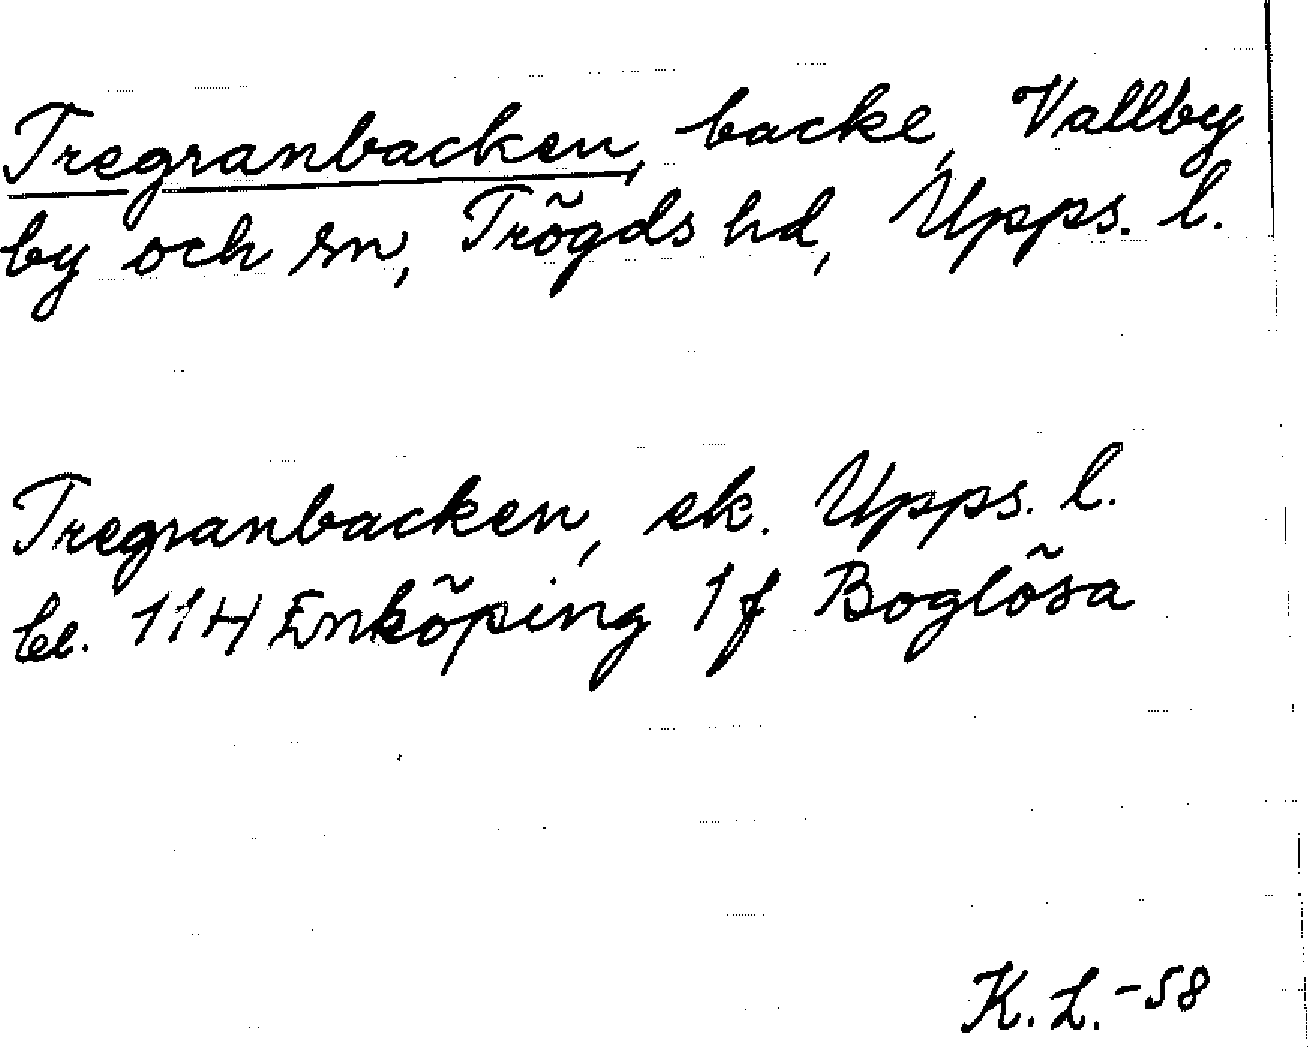 Tregranbacken, backe, Vallby
by och sn, Trögds hd, Upps. l.
Tregranbacken, ek. Upps. l.
bl. 11H Enköping 1f Boglösa
K. L. -58